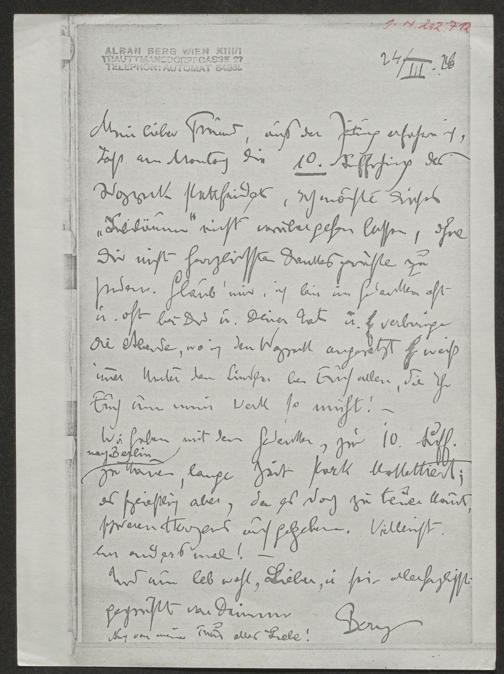 I. N. 202.712
ALBAN BERG WIEN XIII/1
TRAUTTMANSDORFFGASSE 27
TELEPHON: AUTOMAT 84831
24/III. 26
Mein lieber Freund, aus der Zeitung erfahre ich,
daß am Montag die 10. Aufführg des
Wozzeck stattfindet, ich möchte dieses
„Jubiläum“ nicht vorübergehen lassen, ohne
Dir nicht herzlichsten Dankesgefühle zu
senden. Glaub' mir, ich bin in Gedanken oft
u. oft bei Dir u. Deiner Tat u. verbringe
die Abende, wo der Wozzeck angesetzt
immer Unter den Linden bei Euch allen, die Ihr
Euch um mein Werk so müht! –
Wir haben mit dem Gedanken, zur 10. Auff.
nach Berlin
zu kommen, lange Zeit stark kokettiert;
es schließlich aber, da es doch zu teuer kommt,
schweren Herzens aufgegeben. Vielleicht
ein anders mal! –
Und nun leb wohl, Lieber, u. sei allerherzlichst
gegrüßt von Deinem
Berg
Auch von meiner Frau alles Liebe!